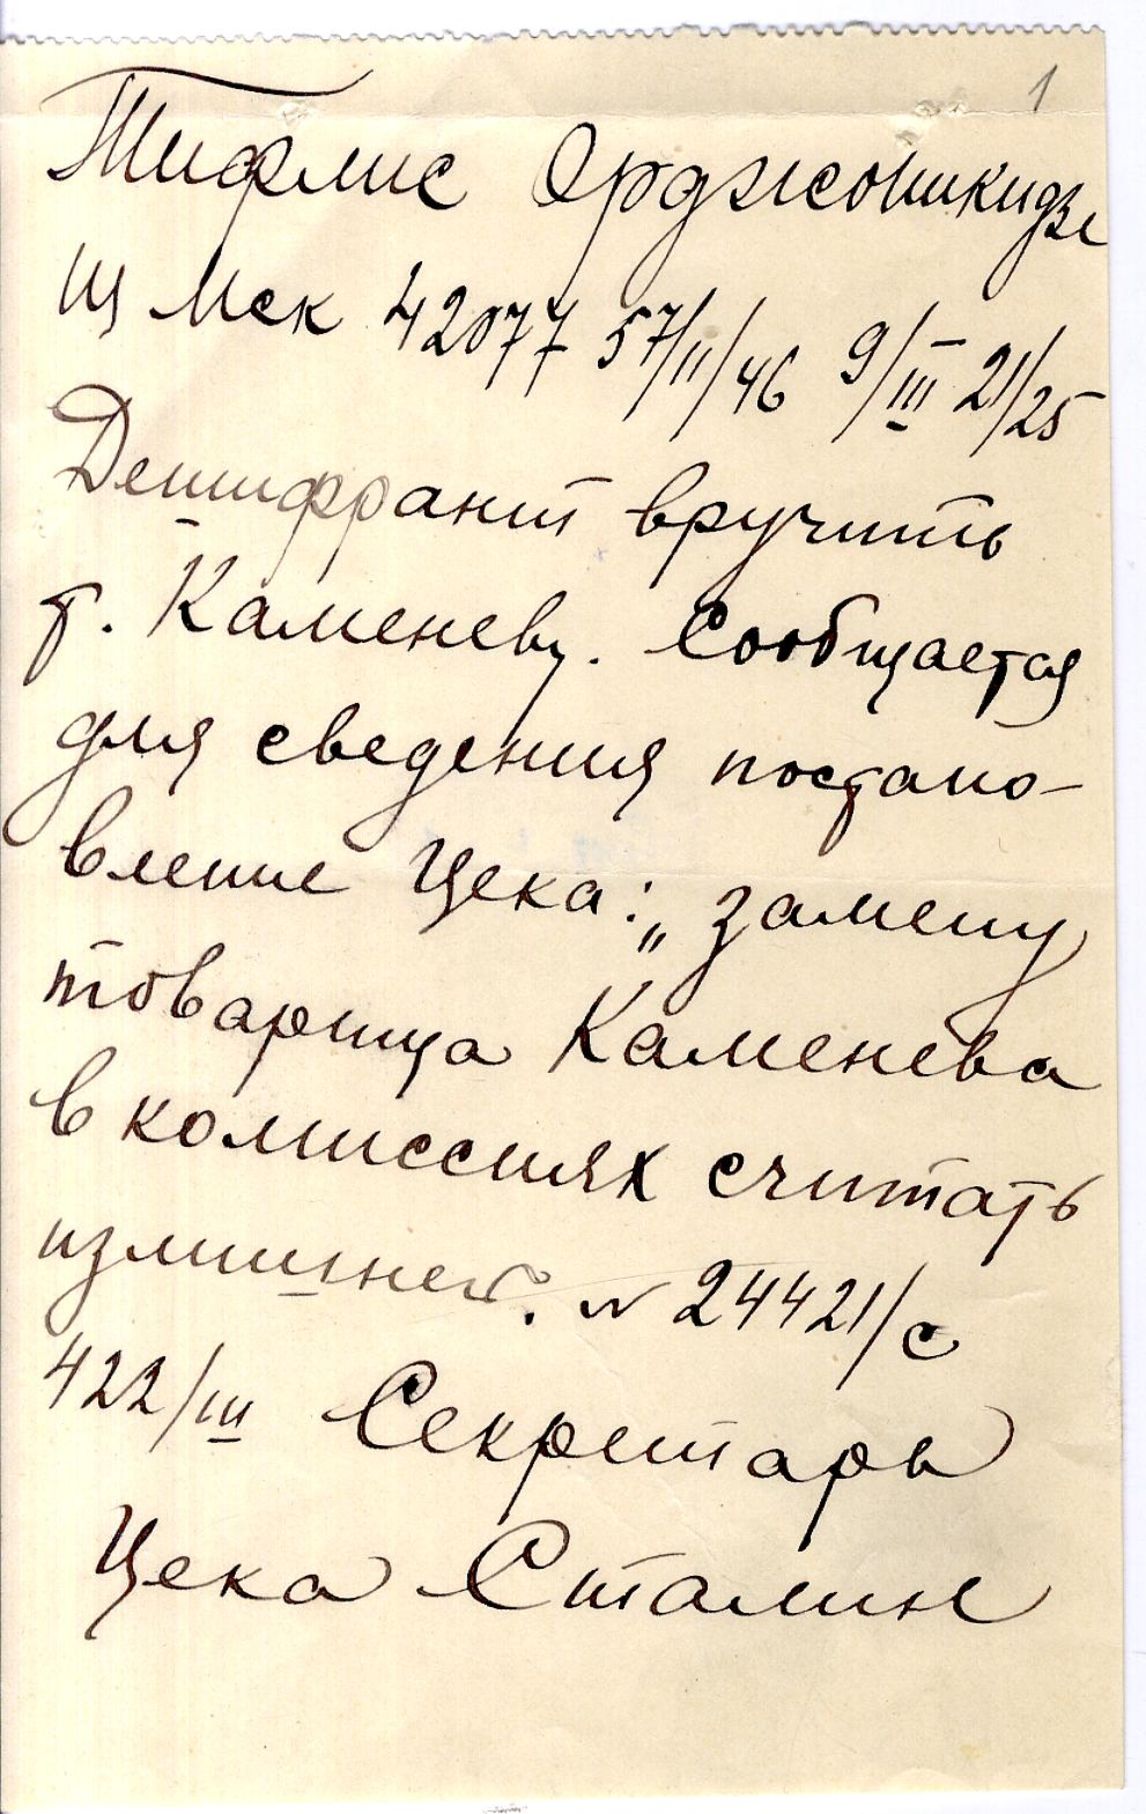 1
Тифлис Орджоникидзе
Щ Мск 42077 57/11/46 9/III 21/25
Дешифрант вручить
т. Каменеву. Сообщается
для сведения постано-
вление Цека: „замену
товарища Каменева
в комиссиях считать
излишней. № 24421/с
422/III Секретарь
Цека Сталин